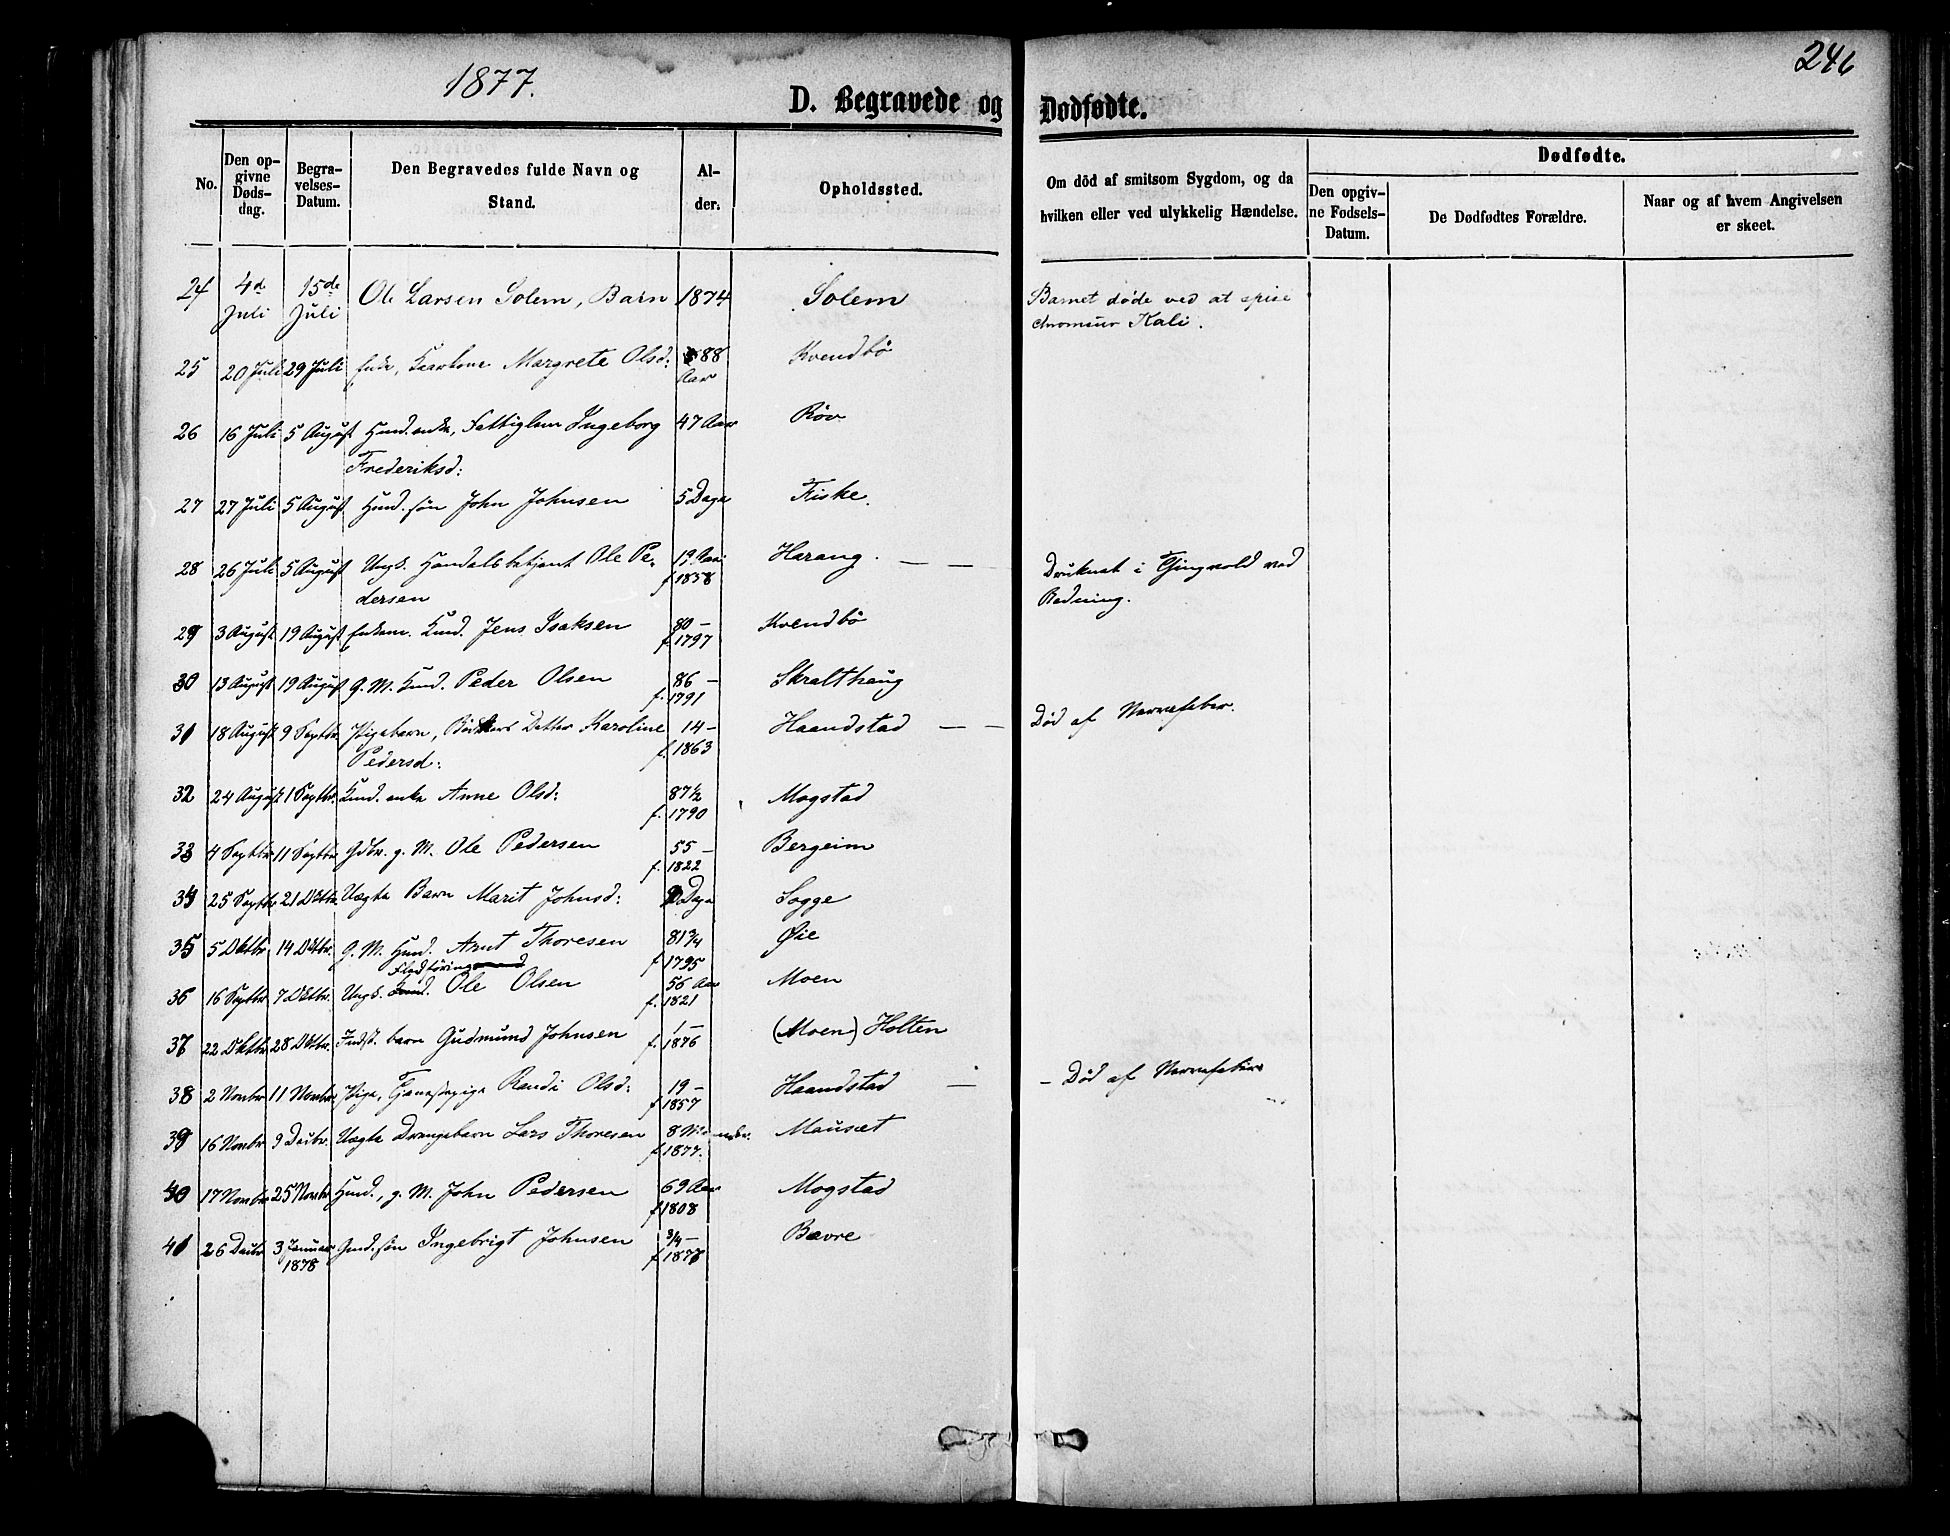 246
1877.
D. Begravede og Dødfødte.
No.
Den opgivne Dødsdag.
Begravelses-Datum.
Den Begravedes fulde Navn og Stand.
Alder.
Opholdssted.
Om död af smitsom Sygdom, og da hvilken eller ved ulykkelig Hændelse.
Dødfødte.
Den opgivne Fødsels-Datum.
De Dødfødtes Forældre.
Naar og af hvem Angivelsen er skeet.
24 4d Juli 15de Juli Ole Larsen Solem, Barn 1874 Solem Barnet døde ved at spise chromsur Kali.
25 20 Juli 29 Juli Enke, Margrete Olsd: 88 Aar Kvendbö
26 16 Juli 5 August Husd. enke, Fattiglem Ingeborg 47 Aar Röv
Frederiksd:
27 27 Juli 5 August Husd. sön John Johnsen 5 Dage Fiske.
28 26 Juli 5 August Ungk. Handelsbetjent Ole Pe- 19 Aar Harang. — — Druknet i Tjingvold ved
dersen f 1858 Badning.
29 3 August 19 August Enkem. Husd. Jens Isaksen 80 — Kvendbö
f. 1797
30 13 August 19 August G. M. Husd. Peder Olsen 86 — Skralthaug
f. 1791
31 18 August 9 Septbr. Pigebarn, Bödkers Datter Karoline 14 — Haandstad — — Död af Nervefeber.
Pedersd: f. 1863
32 24 August 1 Septbr. Husd. enke Anne Olsd: 87½ Mogstad
f. 1790
33 4 Septbr 11 Septbr. Gdbr. g. M. Ole Pedersen 55 — Bergeim
f. 1822
34 25 Septbr 21 Oktbr. Uægte Barn Marit Johnsd: Dage Sogge
35 5 Oktbr 14 Oktbr. G. M. Husd. Arnt Thoresen 81¾ Øie
f 1795
36 16 Septbr 7 Oktbr. Ungk. Ole Olsen 56 Aar Moen
f. 1821
37 22 Oktbr 28 Oktbr. Indst. barn Gudmund Johnsen 1 — (Moen) Holten
f. 1876
38 2 Novbr 11 Novbr. Pige, Tjenestepige Randi Olsd: 19 — Haandstad — — Död af Nervefeber
f 1857
39 16 Novbr 9 Decbr. Uægte Drengebarn Lars Thoresen 8 Maaneder. Mauset
f 1877.
40 17 Novbr 25 Novbr Husd., g. M. John Pedersen 69 Aar Mogstad
f 1808
41 26 Decbr 3 Januar 1878 Husd. sön Ingebrigt Johnsen ¾ — Bævre
f 1877